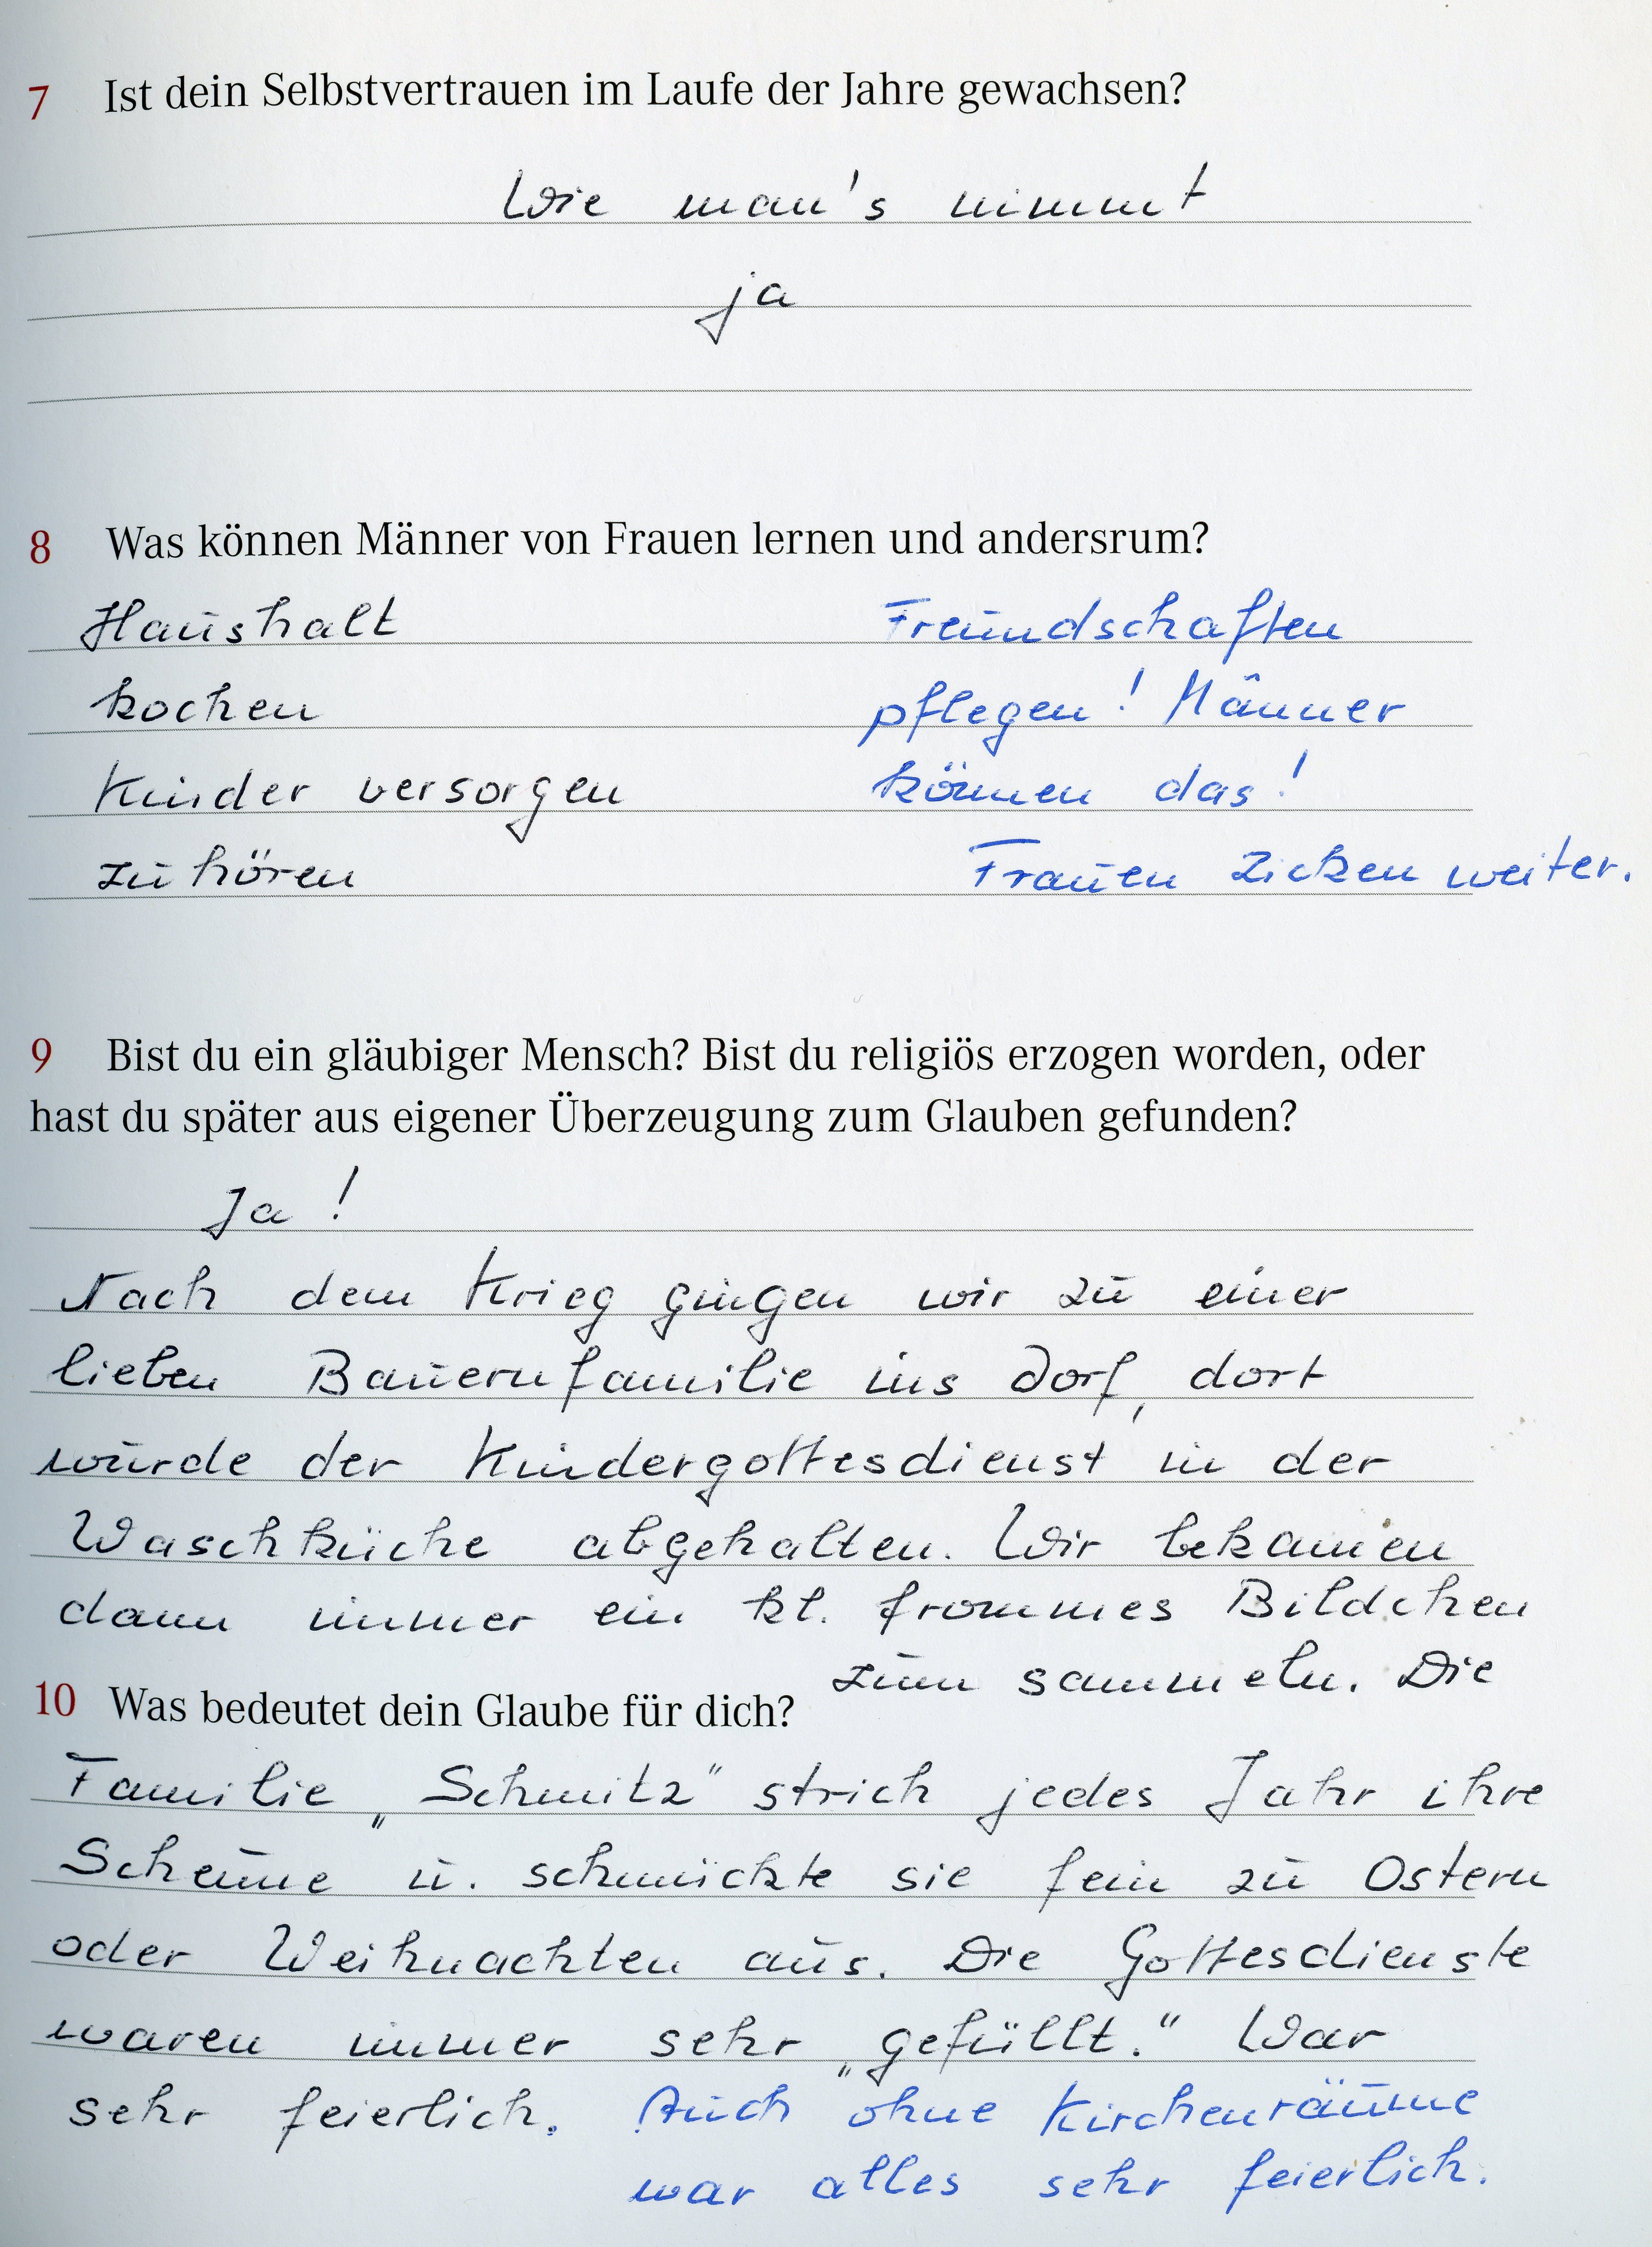 7 Ist dein Selbstvertrauen im Laufe der Jahre gewachsen?
Wie man's nimmt
ja
8 Was können Männer von Frauen lernen und andersrum?
Haushalt
kochen
Kinder versorgen
zuhören
Freundschaften
pflegen! Männer
können das!
Frauen zicken weiter.
9 Bist du ein gläubiger Mensch? Bist du religiös erzogen worden, oder
hast du später aus eigener Überzeugung zum Glauben gefunden?
Ja!
Nach dem Krieg gingen wir zu einer
lieben Bauernfamilie ins Dorf, dort
wurde der Kindergottesdienst in der
Waschküche abgehalten. Wir bekamen
dann immer ein kl. frommes Bildchen
zum sammeln. Die
10 Was bedeutet dein Glaube für dich?
Familie „Schmitz" strich jedes Jahr ihre
Scheune u. schmückte sie fein zu Ostern
oder Weihnachten aus. Die Gottesdienste
waren immer sehr „gefüllt." War
sehr feierlich. Auch ohne Kirchenräume
war alles sehr feierlich.